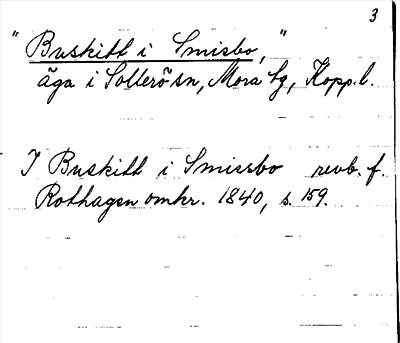 3
"Buskitt i Smisbo,"
äga i Sollerö sn, Mora tg, Kopp.l.
I Buskitt i Smissbo revb. f.
Rothagen omkr. 1840, s. 159.